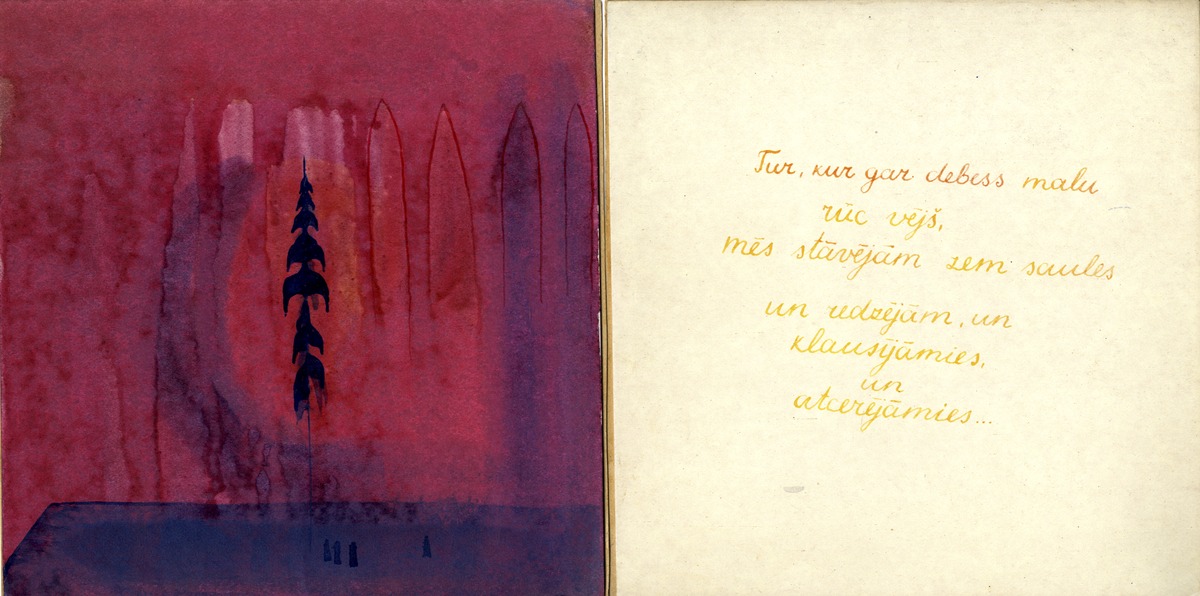 Tur, kur gar debess malu
rūc vējš,
mēs stāvējām zem saules
un redzējām, un
klausījāmies,
un
atcerējāmies...